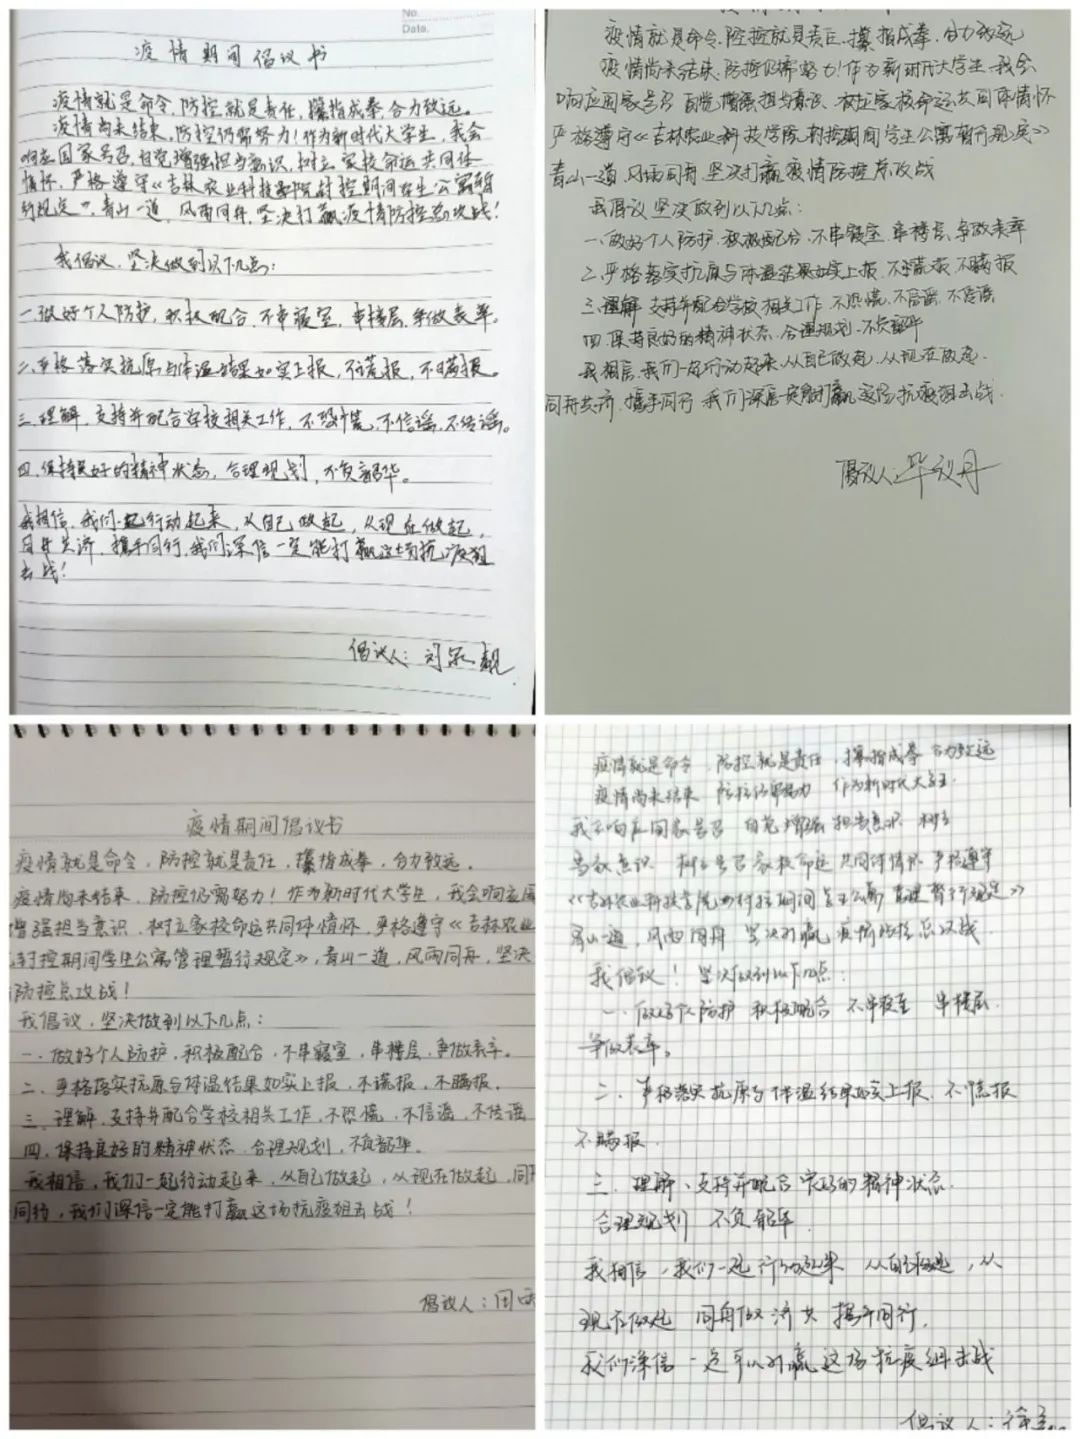 No.
Date.
疫情期间倡议书
疫情就是命令,防控就是责任,攥指成拳,合力致远。
疫情尚未结束,防控仍需努力!作为新时代大学生,我会
响应国家号召,自觉增强担当意识,树立家校命运共同体
情怀,严格遵守《吉林农业科技学院封控期间学生公寓暂
行规定》,青山一道,风雨同舟,坚决打赢疫情防控总攻战!
我倡议,坚决做到以下几点:
一.做好个人防护,积极配合,不串寝室,串楼层,争做表率。
二.严格落实抗原与体温结果如实上报,不谎报,不瞒报。
三.理解,支持并配合学校相关工作,不恐慌,不信谣,不传谣。
四.保持良好的精神状态,合理规划,不负韶华。
我相信,我们一起行动起来,从自己做起,从现在做起,
同舟共济,携手同行,我们深信一定能打赢这场抗疫狙
击战!
倡议人:刘
疫情就是命令,防控就是责任,攥指成拳,合力致远
疫情尚未结束,防控仍需努力!作为新时代大学生,我会
响应国家号召 自觉增强担当意识、树立家校命运共同体情怀
严格遵守《吉林农业科技学院封控期间学生公寓暂行规定》
青山一道,风雨同舟,坚决打赢疫情防控总攻战
我倡议坚决做到以下几点:
一、做好个人防护,积极配合,不串寝室,串楼层,争做表率
二.严格落实抗原与体温结果如实上报,不谎报,不瞒报
三.理解 支持并配合学校相关工作,不恐慌,不信谣,不传谣
四.保持良好的精神状态,合理规划,不负韶华
我相信,我们一起行动起来,从自己做起,从现在做起.
同舟共济,携手同行 我们深信一定能打赢这场抗疫狙击战.
倡议人:毕议丹
疫情期间倡议书
疫情就是命令,防控就是责任,攥指成拳,合力致远。
疫情尚未结束,防控仍需努力!作为新时代大学生,我会响应国
增强担当意识,树立家校命运共同体情怀,严格遵守《吉林农业
封控期间学生公寓管理暂行规定》,青山一道,风雨同舟,坚决
防控总攻战!
我倡议,坚决做到以下几点:
一.做好个人防护,积极配合,不串寝室,串楼层,争做表率。
二.严格落实抗原与体温结果如实上报,不谎报,不瞒报。
三.理解,支持并配合学校相关工作,不恐慌,不信谣,不传谣
四.保持良好的精神状态,合理规划,不负韶华。
我相信,我们一起行动起来,从自己做起,从现在做起,同
同行,我们深信一定能打赢这场抗疫狙击战!
倡议人:周
疫情就是命令,防控就是责任,攥指成拳 合力致远
疫情尚未结束 防控仍需努力 作为新时代大学生
我会响应国家号召 自觉增强担当意识 树立
意识 树立 家校命运共同体情怀 严格遵守
《吉林农业科技学院封控期间学生公寓管理暂行规定》
青山一道,风雨同舟 坚决打赢疫情防控总攻战
我倡议!坚决做到以下几点:
一、做好个人防护 积极配合 不串寝室 串楼层
争做表率。
二、严格落实抗原与体温结果如实上报,不谎报
不瞒报.
三.理解、支持并配合 良好的精神状态.
合理规划 不负韶华.
我相信,我们一起行动起来 从自己做起,从
现在做起 同舟做济共 携手同行,
我们深信一定可以打赢这场抗疫狙击战
倡议人:徐